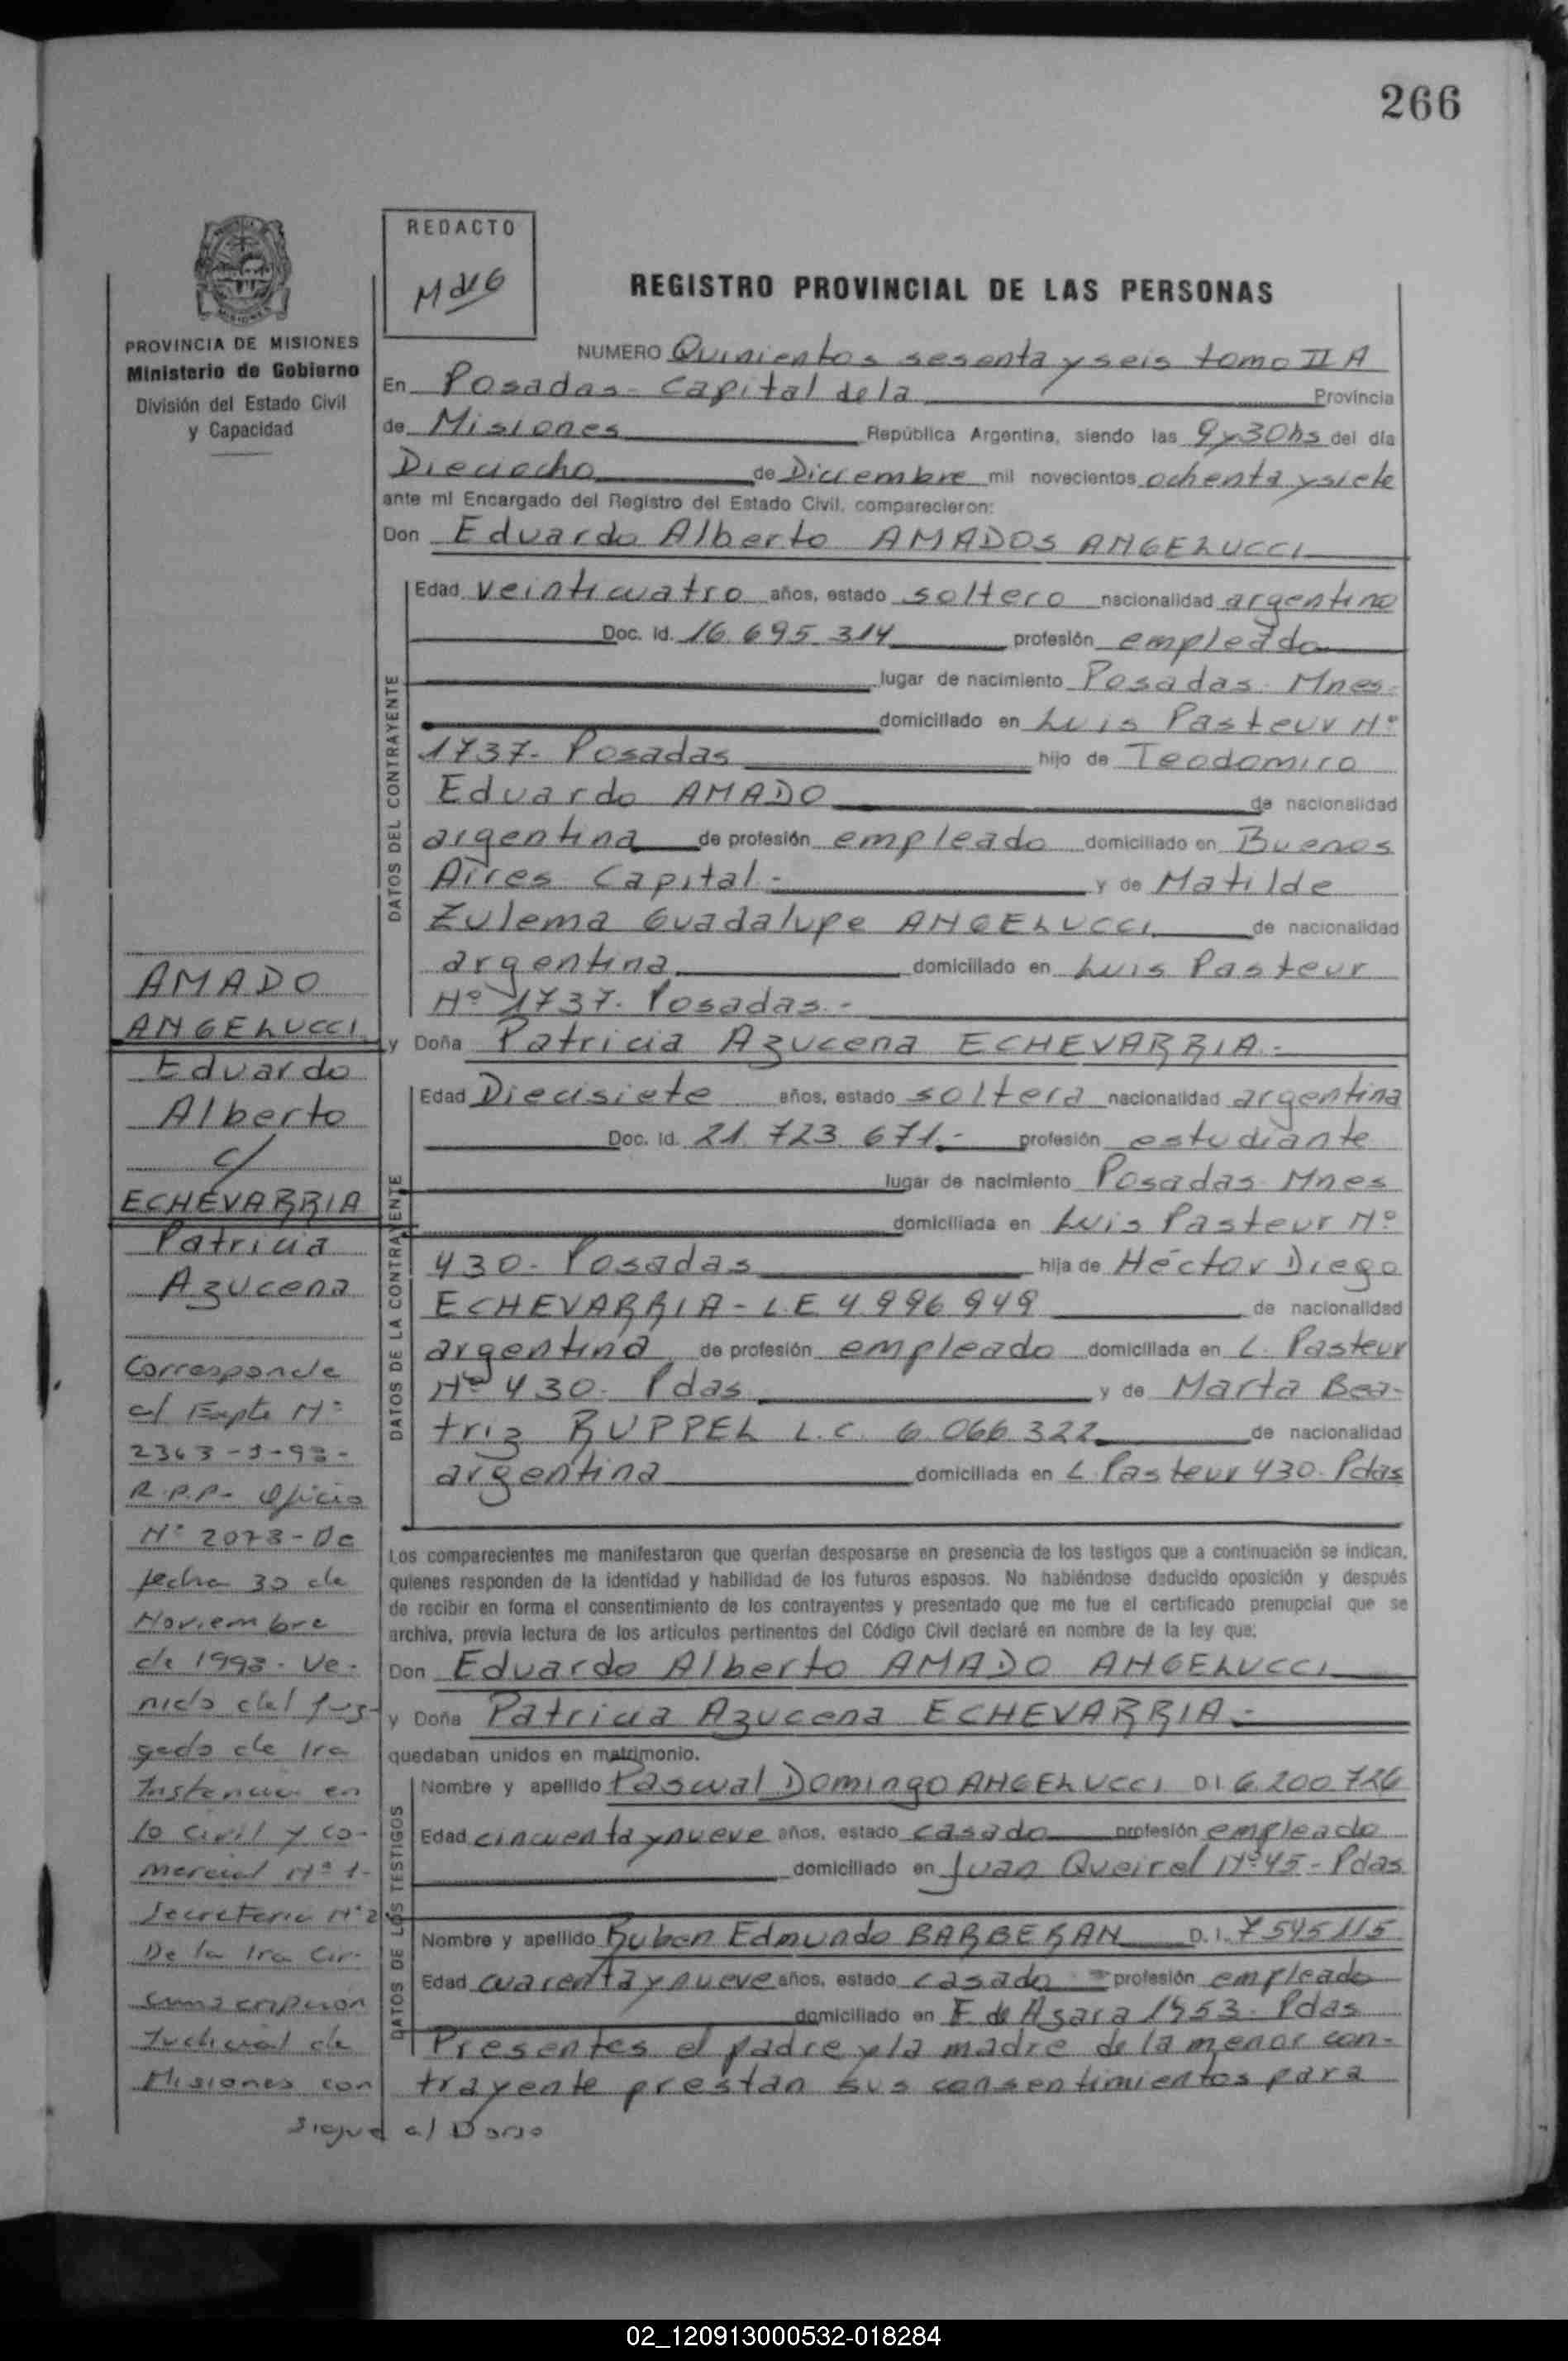 266
REDACTO
REGISTRO PROVINCIAL DE LAS PERSONAS
PROVINCIA DE MISIONES
Ministerio de Gobierno
División del Estado Civil
y Capacidad
NUMERO Quinientos sesenta y seis tomo II A
En Posadas - Capital de la Provincia
de Misiones República Argentina, siendo las 9 y 30 hs del día
Dieciocho de Diciembre mil novecientos ochenta y siete
ante mí Encargado del Registro del Estado Civil, comparecieron:
Don Eduardo Alberto AMADOS ANGELUCCI
DATOS DEL CONTRAYENTE
Edad veinticuatro años, estado soltero nacionalidad argentino
Doc. Id. 16.695.314 profesión empleado
lugar de nacimiento Posadas - Mnes-
domiciliado en Luis Pasteur Nº
1737- Posadas hijo de Teodomiro
Eduardo AMADO de nacionalidad
argentina de profesión empleado domiciliado en Buenos
Aires Capital.- y de Matilde
Zulema Guadalupe ANGELUCCI de nacionalidad
argentina domiciliado en Luis Pasteur
Nº 1737- Posadas.-
y Doña Patricia Azucena ECHEVARRIA.-
DATOS DE LA CONTRAYENTE
Edad Diecisiete años, estado soltera nacionalidad argentina
Doc. Id. 21.723.671.- profesión estudiante
lugar de nacimiento Posadas Mnes
domiciliada en Luis Pasteur Nº
430- Posadas hija de Héctor Diego
ECHEVARRIA - L.E 4.996.949 de nacionalidad
argentina de profesión empleado domiciliada en L. Pasteur
Nº 430- Pdas y de Marta Bea-
triz RUPPEL L.C. 6.066.322 de nacionalidad
argentina domiciliada en L. Pasteur 430- Pdas
Los comparecientes me manifestaron que querían desposarse en presencia de los testigos que a continuación se indican,
quienes responden de la identidad y habilidad de los futuros esposos. No habiéndose deducido oposición y después
de recibir en forma el consentimiento de los contrayentes y presentado que me fue el certificado prenupcial que se
archiva, previa lectura de los artículos pertinentes del Código Civil declaré en nombre de la ley que:
Don Eduardo Alberto AMADO ANGELUCCI
y Doña Patricia Azucena ECHEVARRIA.-
quedaban unidos en matrimonio.
DATOS DE LOS TESTIGOS
Nombre y apellido Pascual Domingo ANGELUCCI D.I. 6.200.726
Edad cincuenta y nueve años, estado casado profesión empleado
domiciliado en Juan Queirel Nº 45 - Pdas
Nombre y apellido Ruben Edmundo BARBERAN D.I. 7545115
Edad cuarenta y nueve años, estado casado profesión empleado
domiciliado en F. de Azara 1953- Pdas
Presentes el padre y la madre de la menor con-
trayente prestan sus consentimientos para
AMADO
ANGELUCCI
Eduardo
Alberto
c/
ECHEVARRIA
Patricia
Azucena
Corresponde
al Expte Nº
R.P.P- Oficio
Nº 2073- De
fecha 30 de
Noviembre
de 1993- Ve-
nido del Juz-
gado de 1ra
Instancia en
lo Civil y Co-
mercial Nº 1-
Secretaria Nº 2
De la 1ra Cir-
cunscripcion
Judicial de
Misiones con
Sigue al Dorso
02_120913000532-018284